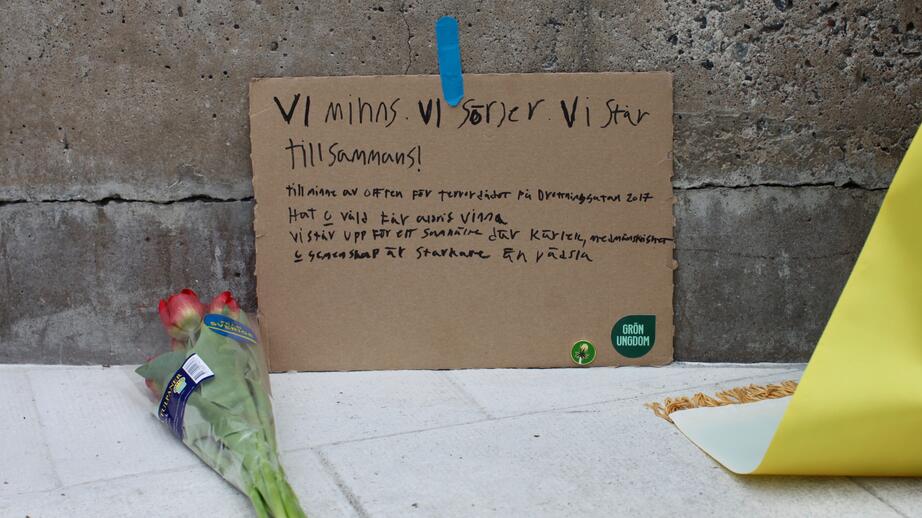 VI minns. VI sörjer. Vi står
tillsammans!
till minne av offren för terrordådet på Drottninggatan 2017
Hat o våld får aldrig vinna
Vi står upp för ett samhälle där kärlek, medmänsklighet
o gemenskap är starkare än rädsla
GRÖN
UNGDOM
FRÅN
SVERIGE
TULPANER